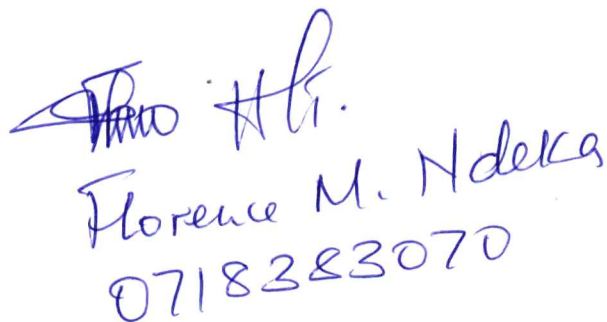 Florence M. Ndeka
0718383070